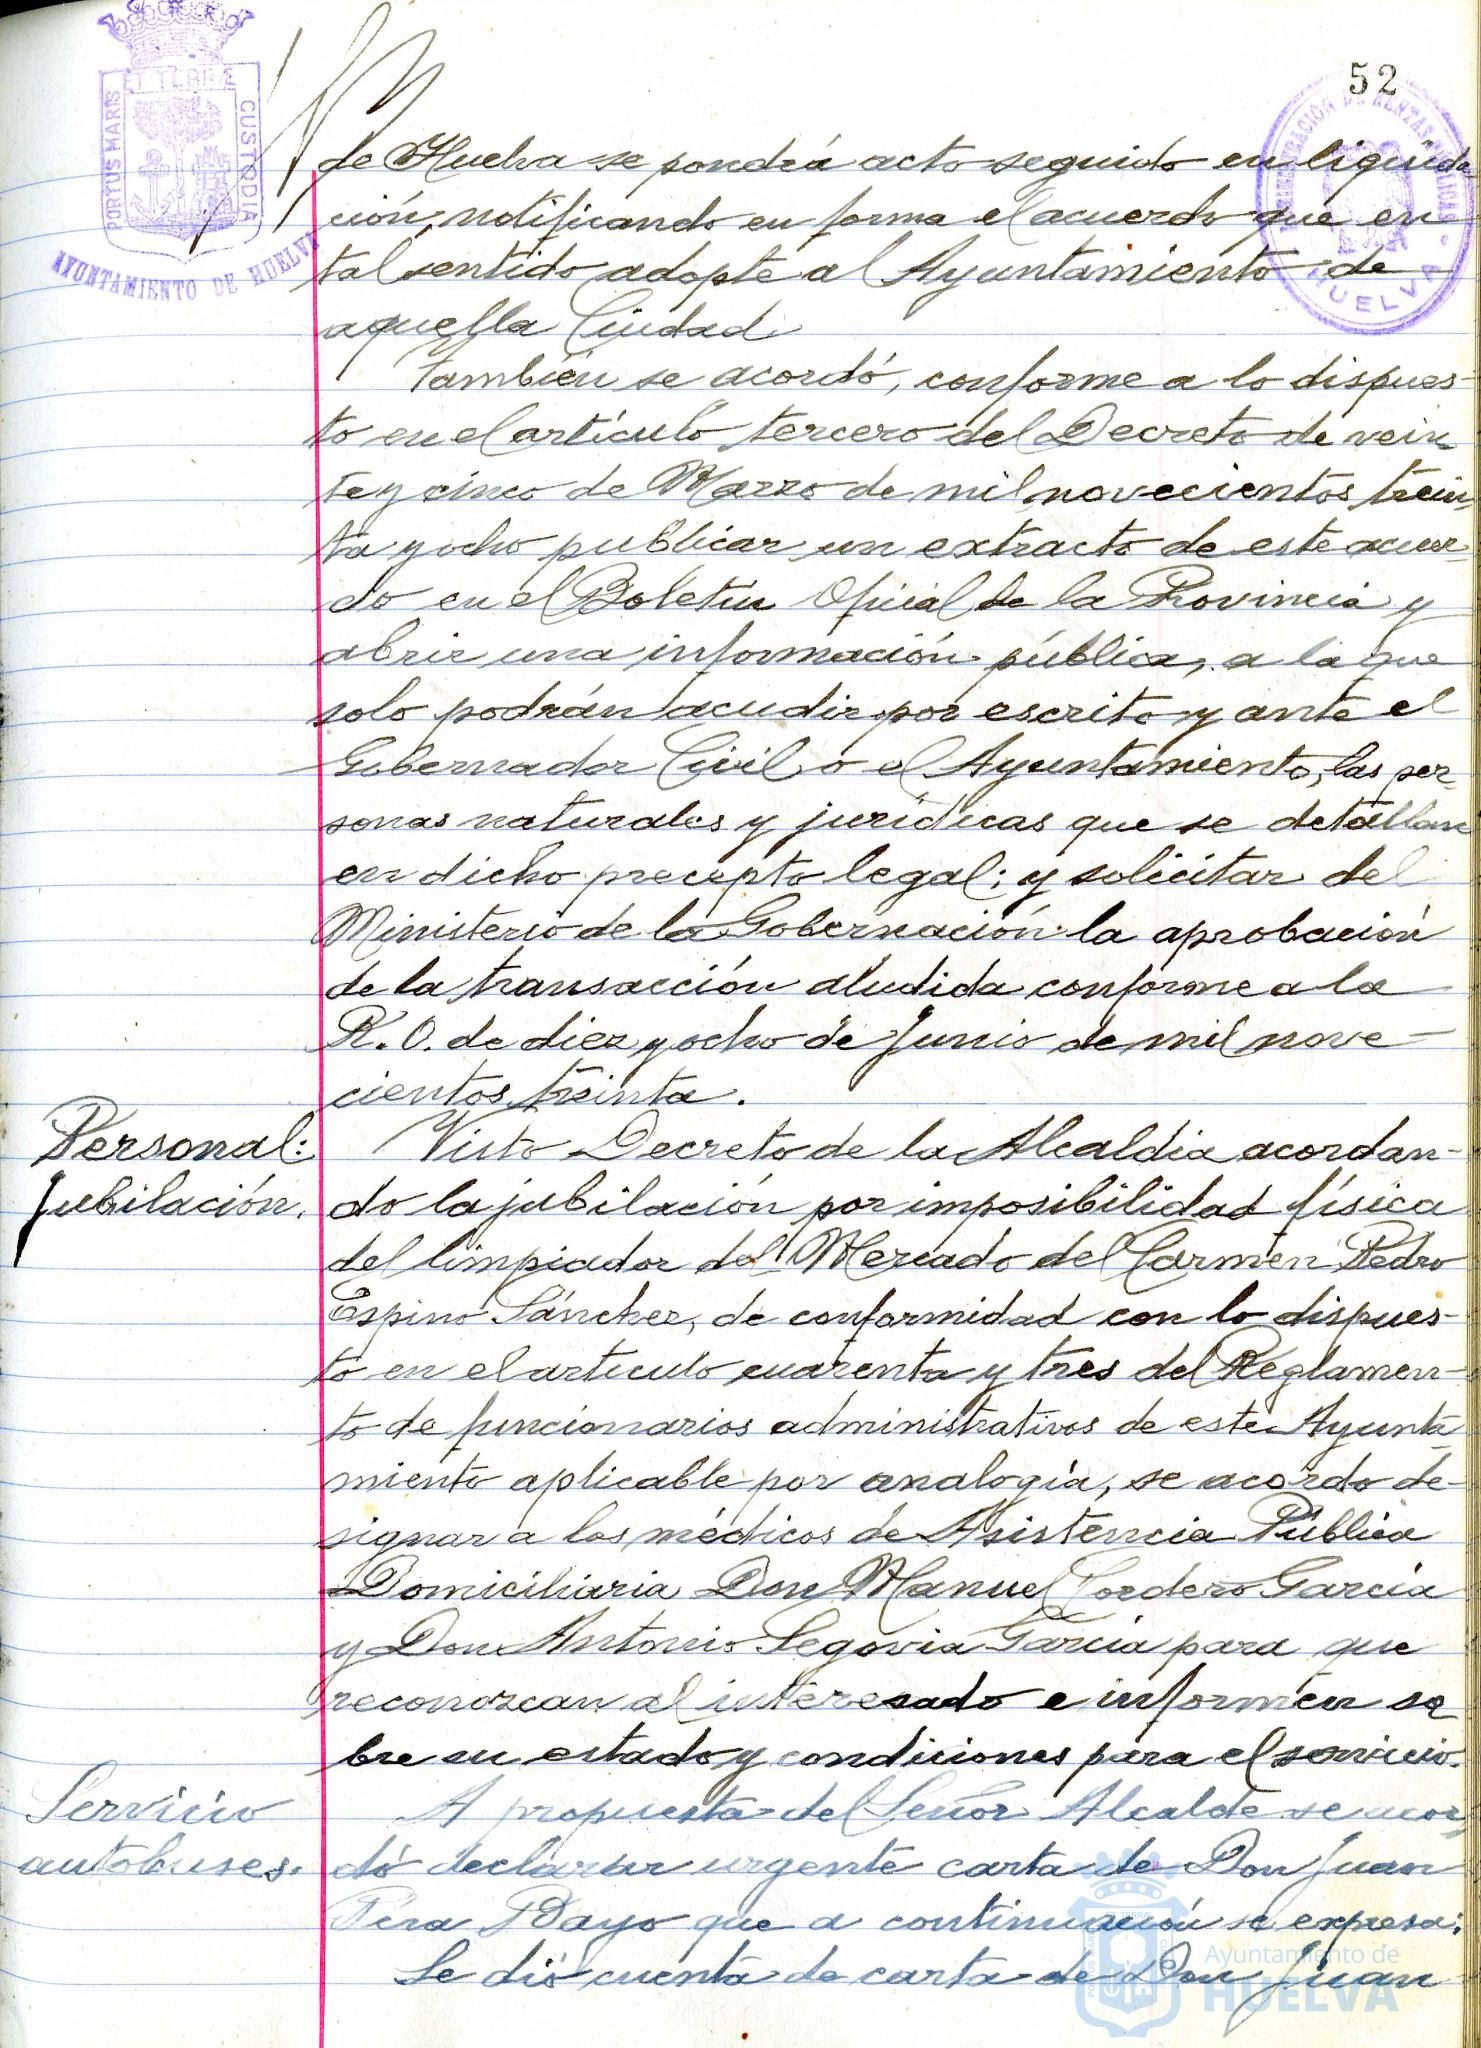 52
PORTUS MARIS ET TERRÆ CUSTODIA
AYUNTAMIENTO DE HUELVA
ADMINISTRACIÓN DE RENTAS PÚBLICAS
HUELVA
de Huelva se pondrá acto seguido en liquida
ción, notificando en forma el acuerdo que en
tal sentido adopte al Ayuntamiento de
aquella Ciudad
También se acordó, conforme a lo dispues-
to en el artículo tercero del Decreto de vein
te y cinco de Marzo de mil novecientos trein
ta y ocho publicar un extracto de este acuer-
do en el Boletín Oficial de la Provincia y
abrir una información pública, a la que
solo podrán acudir por escrito y ante el
Gobernador Civil o el Ayuntamiento, las per-
sonas naturales y jurídicas que se detallan
en dicho precepto legal; y solicitar del
Ministerio de la Gobernación la aprobación
de la transacción aludida conforme a la
R. O. de diez y ocho de Junio de mil nove-
cientos treinta.
Personal:
Jubilación.
Visto Decreto de la Alcaldia acordan-
do la jubilación por imposibilidad física
del limpiador del Mercado del Carmen Pedro
Espino Sánchez, de conformidad con lo dispues-
to en el articulo cuarenta y tres del Reglamen-
to de funcionarios administrativos de este Ayunta-
miento aplicable por analogía, se acordo de-
signar a los médicos de Asistencia Pública
Domiciliaria Don Manuel Cordero García
y Don Antonio Segovia García para que
reconozcan al interesado e informen so
bre su estado y condiciones para el servicio.
Servicio
autobuses.
A propuesta del Señor Alcalde se acor
dó declarar urgente carta de Don Juan
Bayo que a continuación se expresa:
Se dió cuenta de carta de Don Juan
Ayuntamiento de
HUELVA